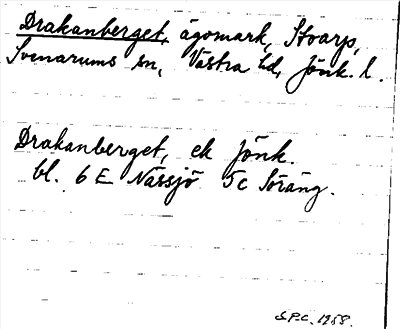 Drakanberget, ägomark, Stoarp,
Svenarums sn, Västra hd, Jönk. l.
Drakanberget, ek Jönk.
bl. 6 E Nässjö 5c Söräng.
S.P.C. 1958.